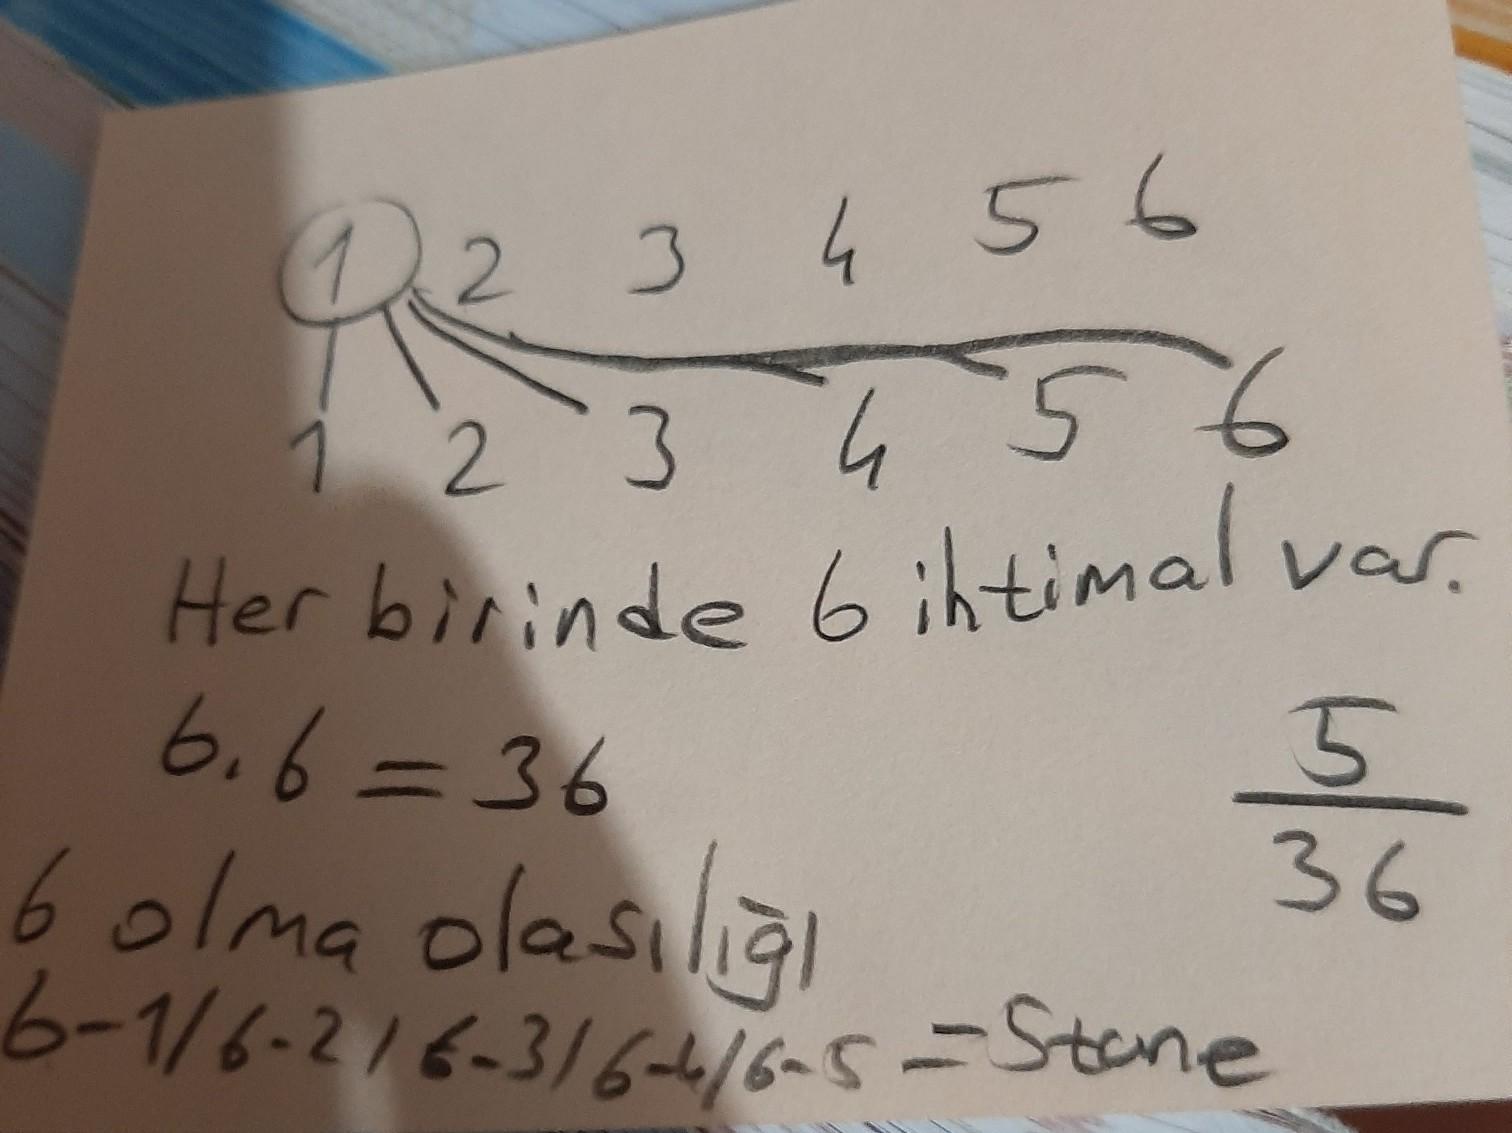 1 2 3 4 5 6
1 2 3 4 5 6
Her birinde 6 ihtimal var.
6.6 = 36
5
36
6 olma olasılığı
6-1/6-2/6-3/6-4/6-5 = 5tane